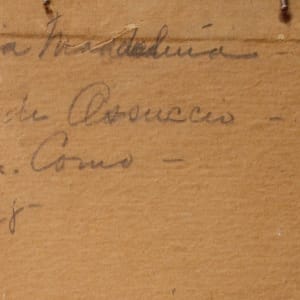 ia Maddalena -
di Ossuccio -
. Como -